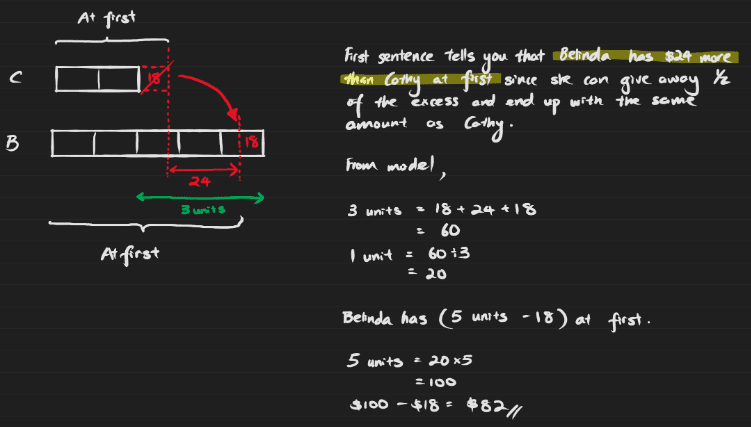 At first
C
18
B
18
24
3 units
At first
First sentence tells you that Belinda has $24 more
than Cathy at first since she can give away 1/2
of the excess and end up with the same
amount as Cathy.
From model,
3 units = 18 + 24 + 18
= 60
1 unit = 60 ÷ 3
= 20
Belinda has (5 units - 18) at first.
5 units = 20 x 5
= 100
$100 - $18 = $82//